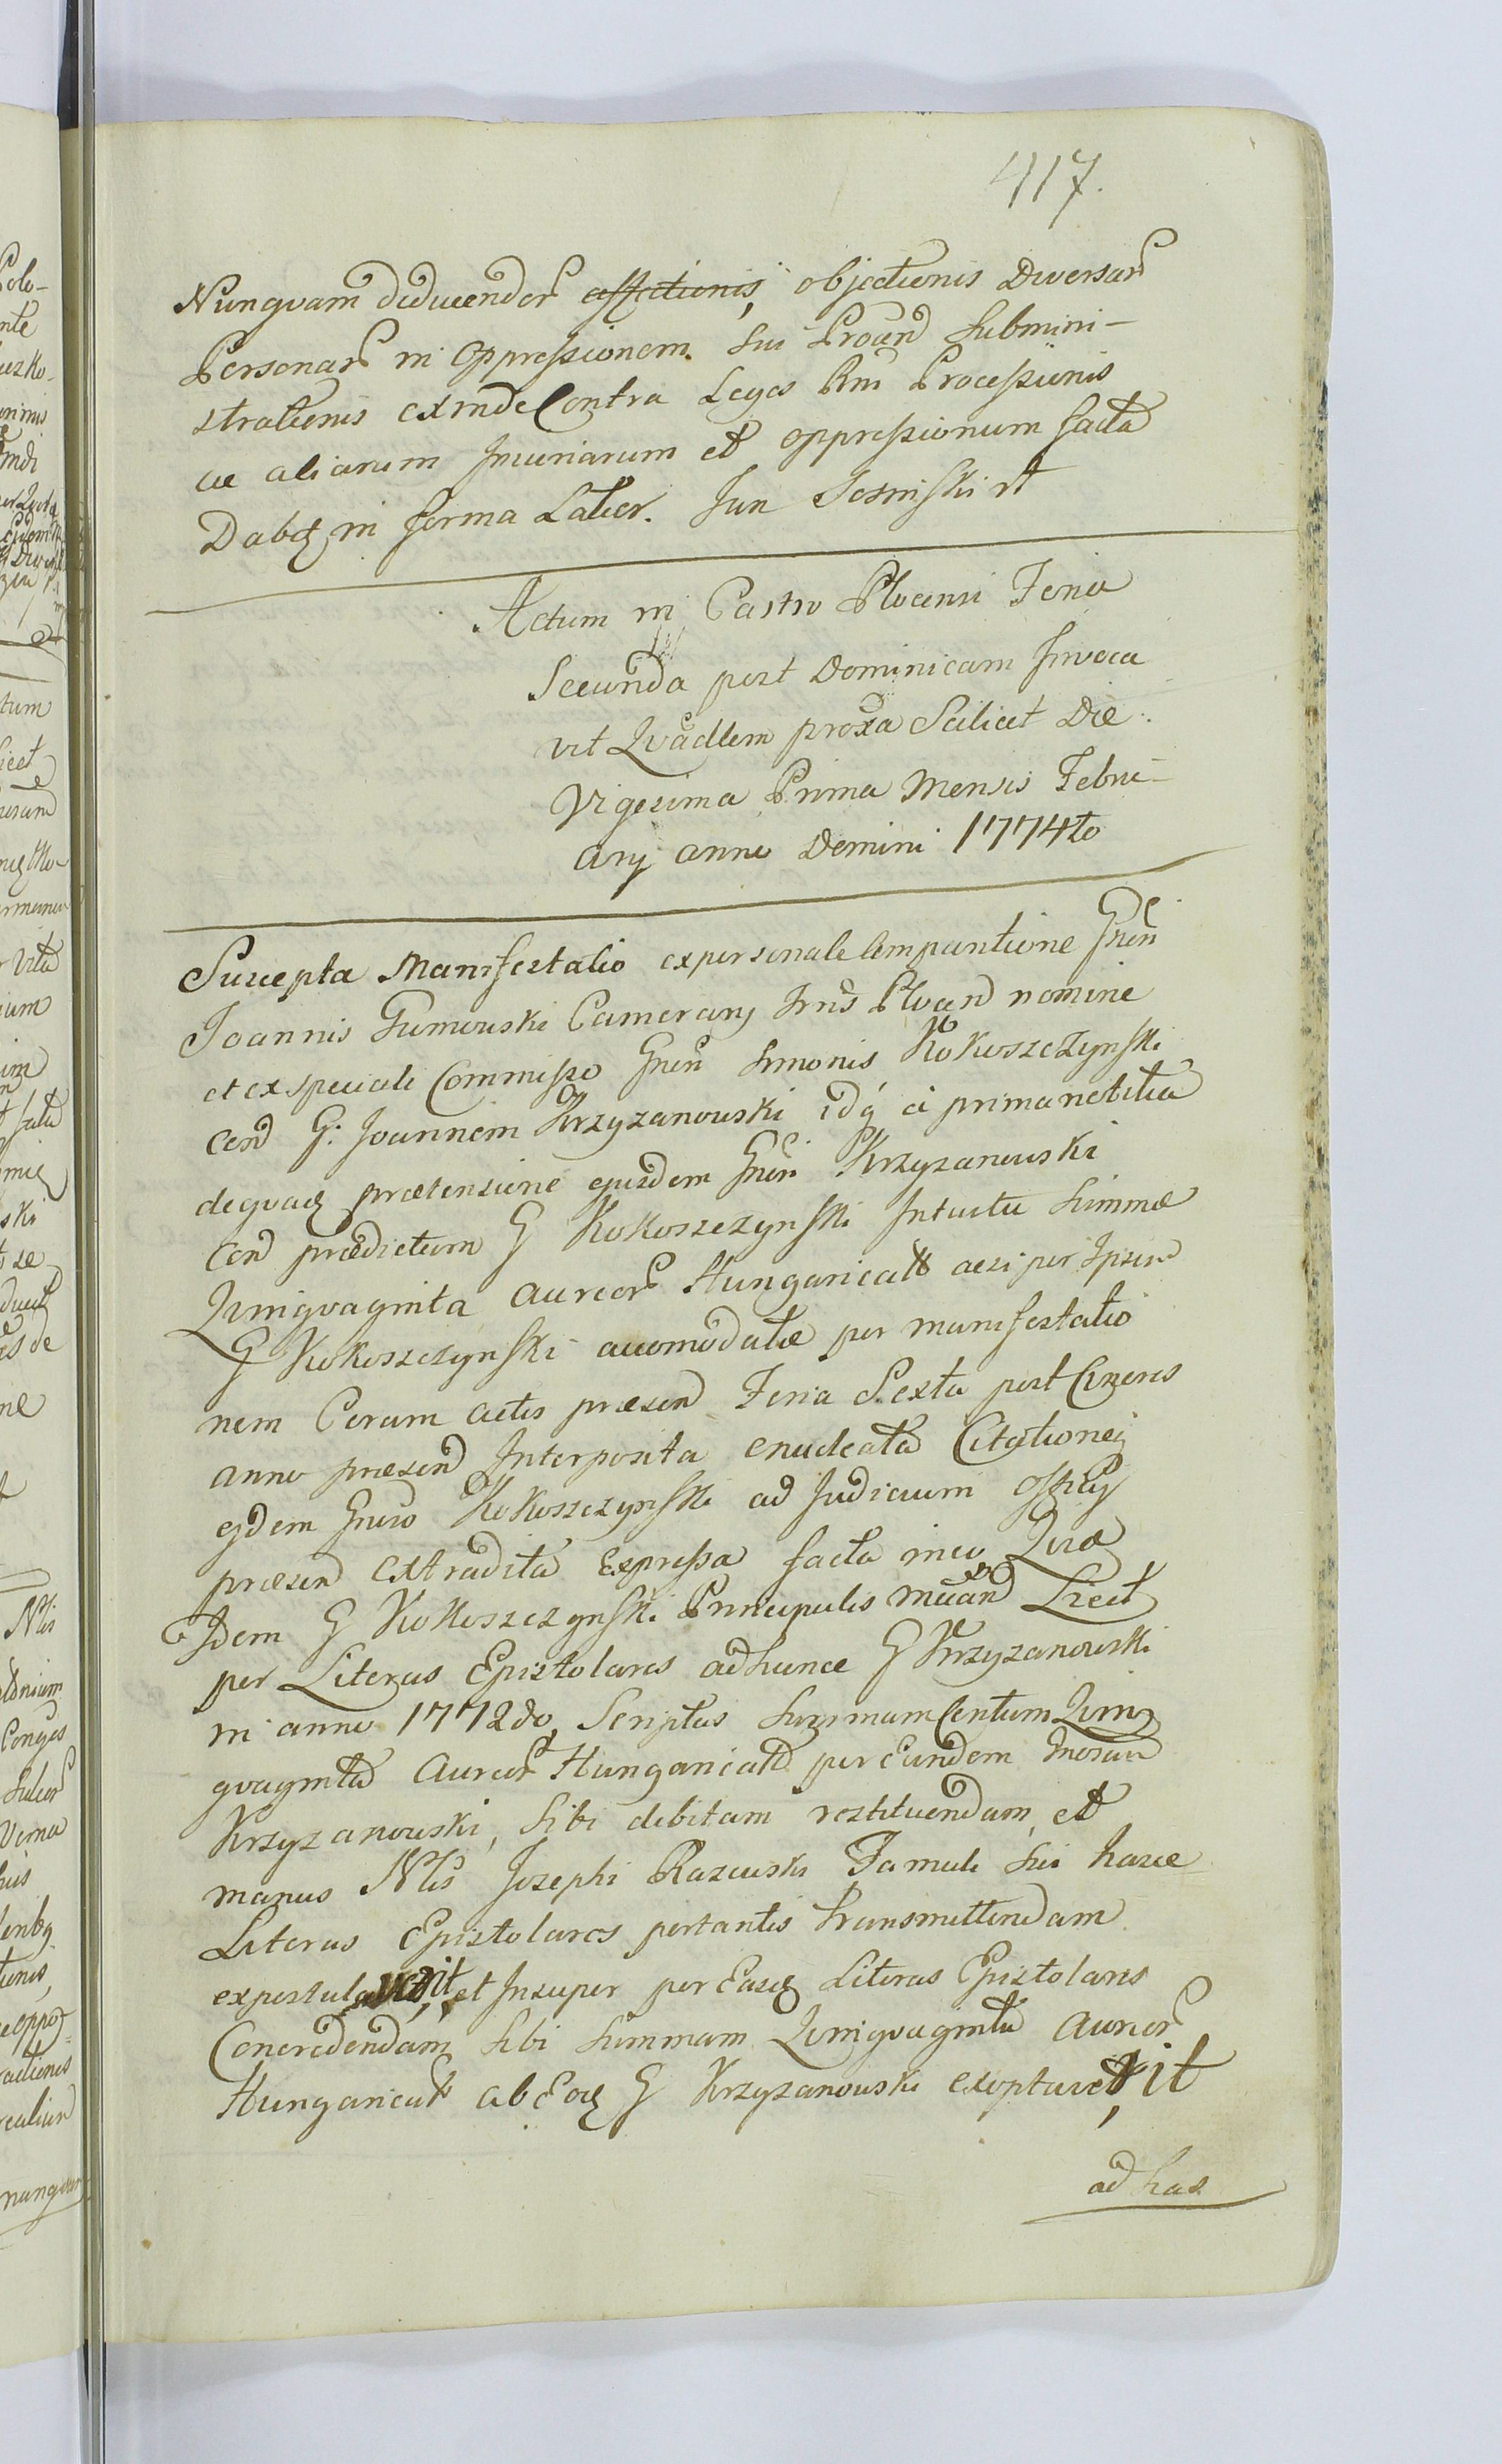 417.
Nunqvam deducendor affectionis, objectionis Diversar
Personar in oppressionem sui Proand submini-
strationis exinde Contra Leges Rni Processionis
ac aliarum Injuriarum et oppressionum facta
Dabq in forma Latior. Jan Josniski rt
Actum in Castro Plocensi Feria
Secunda post Dominicam Invoca
vit Qvadlem proxa Scilicet Die
Vigesima Prima Mensis Febru-
ary anno Domini 1774to
Suscepta Manifestatio ex personale Compantione Gnen
Joannis Gumowski Camerary Trns Plocen nomine
et ex speciali Commisso Gnen Simonis Kokoszczynski
con G: Joannem Krzyzanowski idq à prima notitia
de qvaq prætensione ejusdem Gnen Krzyzanowski
con prædictum G Kokoszczynski Intuitu Summæ
Qvinqvaginta aureor Hungarical acsi per Ipsum
G Kokoszczynski accomodatæ per manifestatio
nem Coram actis præsen Feria Sexta post Cineres
anno præsen Interposita enucleata Citationeq
ejdem Gneso Kokoszczynski ad Judicium Officy
præsen extradita Expressa facta in eo Qvæ
Idem G Kokoszczynski Principalis mean Licet
per Literas Epistolares ad hunce G Krzyzanowski
in anno 1772do, Scriptas Summam Centum Qvinq
qvaginta Aureor Hungarical per Eundem Gnosum
Krzyzanowski, sibi debitam restituendam, et
manus Nlis Josephi Razewski Famuli sui hasce
Literas Epistolares portantis transmittendam
expostulaverit, et Insuper per Easq Literas Epistolares
Concredendam sibi Summam Qvinqvaginta Aureor
Hungarical ab Eoq G Krzyzanowski exoptaverit,
ad has